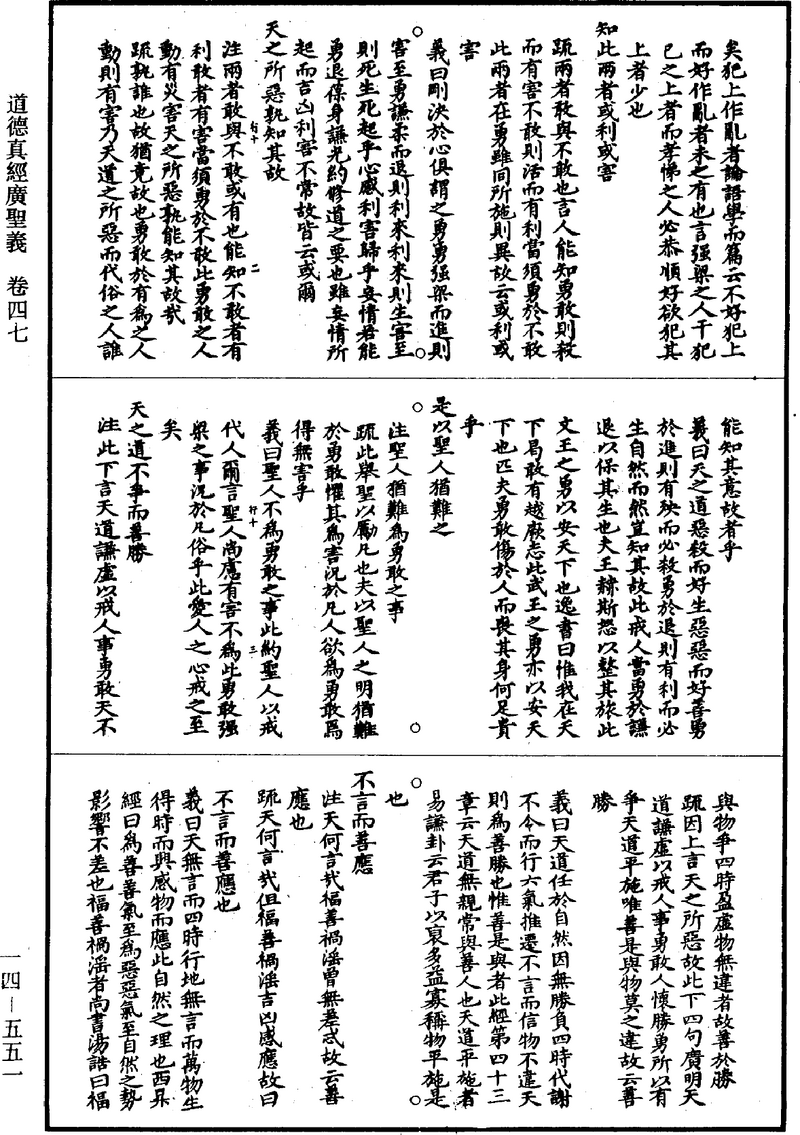 道德真經廣聖義　卷四七
矣犯上作亂者論語學而篇云不好犯上
而好作亂者未之有也言强梁之人干犯
已之上者而孝悌之人必恭順好欲犯其
上者少也
知此兩者或利或害
疏兩者敢與不敢也言人能知勇敢則殺
而有害不敢則活而有利當須勇於不敢
此兩者在勇雖同所施則異故云或利或
害
義曰剛決於心俱謂之勇勇强梁而進則
害至勇謙柔而退則利來利來則生害至
則死生死起乎心感利害歸乎妄情若能
勇退葆身謙光約修道之要也雖妄情所
起而吉凶利害不常故皆云或爾
天之所惡孰知其故
注兩者敢與不敢或有也能知不敢者有
利敢者有害當須勇於不敢此勇敢之人
動有災害天之所惡孰能知其故哉
疏孰誰也故猶意故也勇敢於有為之人
動則有害乃天道之所惡而代俗之人誰
能知其意故者乎
義曰天之道惡殺而好生惡惡而好善勇
於進則有殃而必殺勇於退則有利而必
生自然而然宜知其故此戒人當勇於謙
退以保其生也夫王赫斯怒以整其旅此
文王之勇以安天下也逸書曰惟我在天
下曷敢有越厥志此武王之勇亦以安天
下也匹夫勇敢傷於人而喪其身何足貴
乎
是以聖人猶難之
注聖人猶難為勇敢之事
疏此舉聖以勵凡也夫以聖人之明猶難
於勇敢懼其為害況於凡人欲為勇敢焉
得無害乎
義曰聖人不為勇敢之事此約聖人以戒
代人爾言聖人尚慮有害不為此勇敢强
梁之事況於凡俗乎此愛人之心戒之至
矣
天之道不爭而善勝
注此下言天道謙虛以戒人事勇敢天不
與物爭四時盈虛物無違者故善於勝
疏因上言天之所惡故此下四句廣明天
道謙虛以戒人事勇敢人懷勝勇所以有
爭天道平施唯善是與物莫之違故云善
勝
義曰天道任於自然因無勝負四時代謝
不令而行六氣推遷不言而信物不違天
則為善勝也惟善是與者此經第四十三
章云天道無親常與善人也天道平施者
易謙卦云君子以裒多益寡稱物平施是
也
不言而善應
注天何言哉福善禍淫曾無差忒故云善
應也
疏天何言哉但福善禍淫吉凶感應故曰
不言而善應也
義曰天無言而四時行地無言而萬物生
得時而興感物而應此自然之理也西昇
經曰為善善氣至為惡惡氣至自然之勢
影響不差也福善禍淫者尚書湯誥曰福
一四—五五一